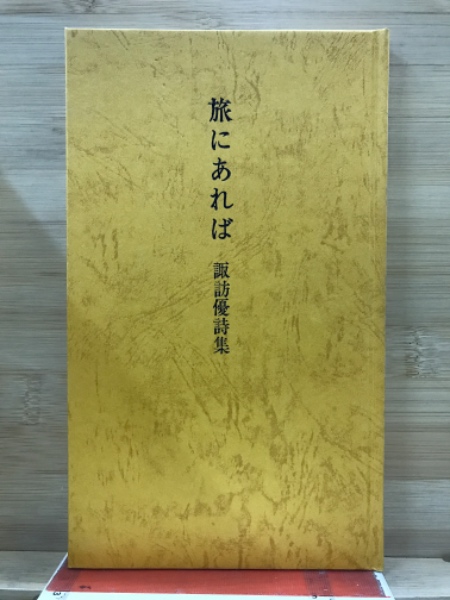 旅にあれば
諏訪優詩集